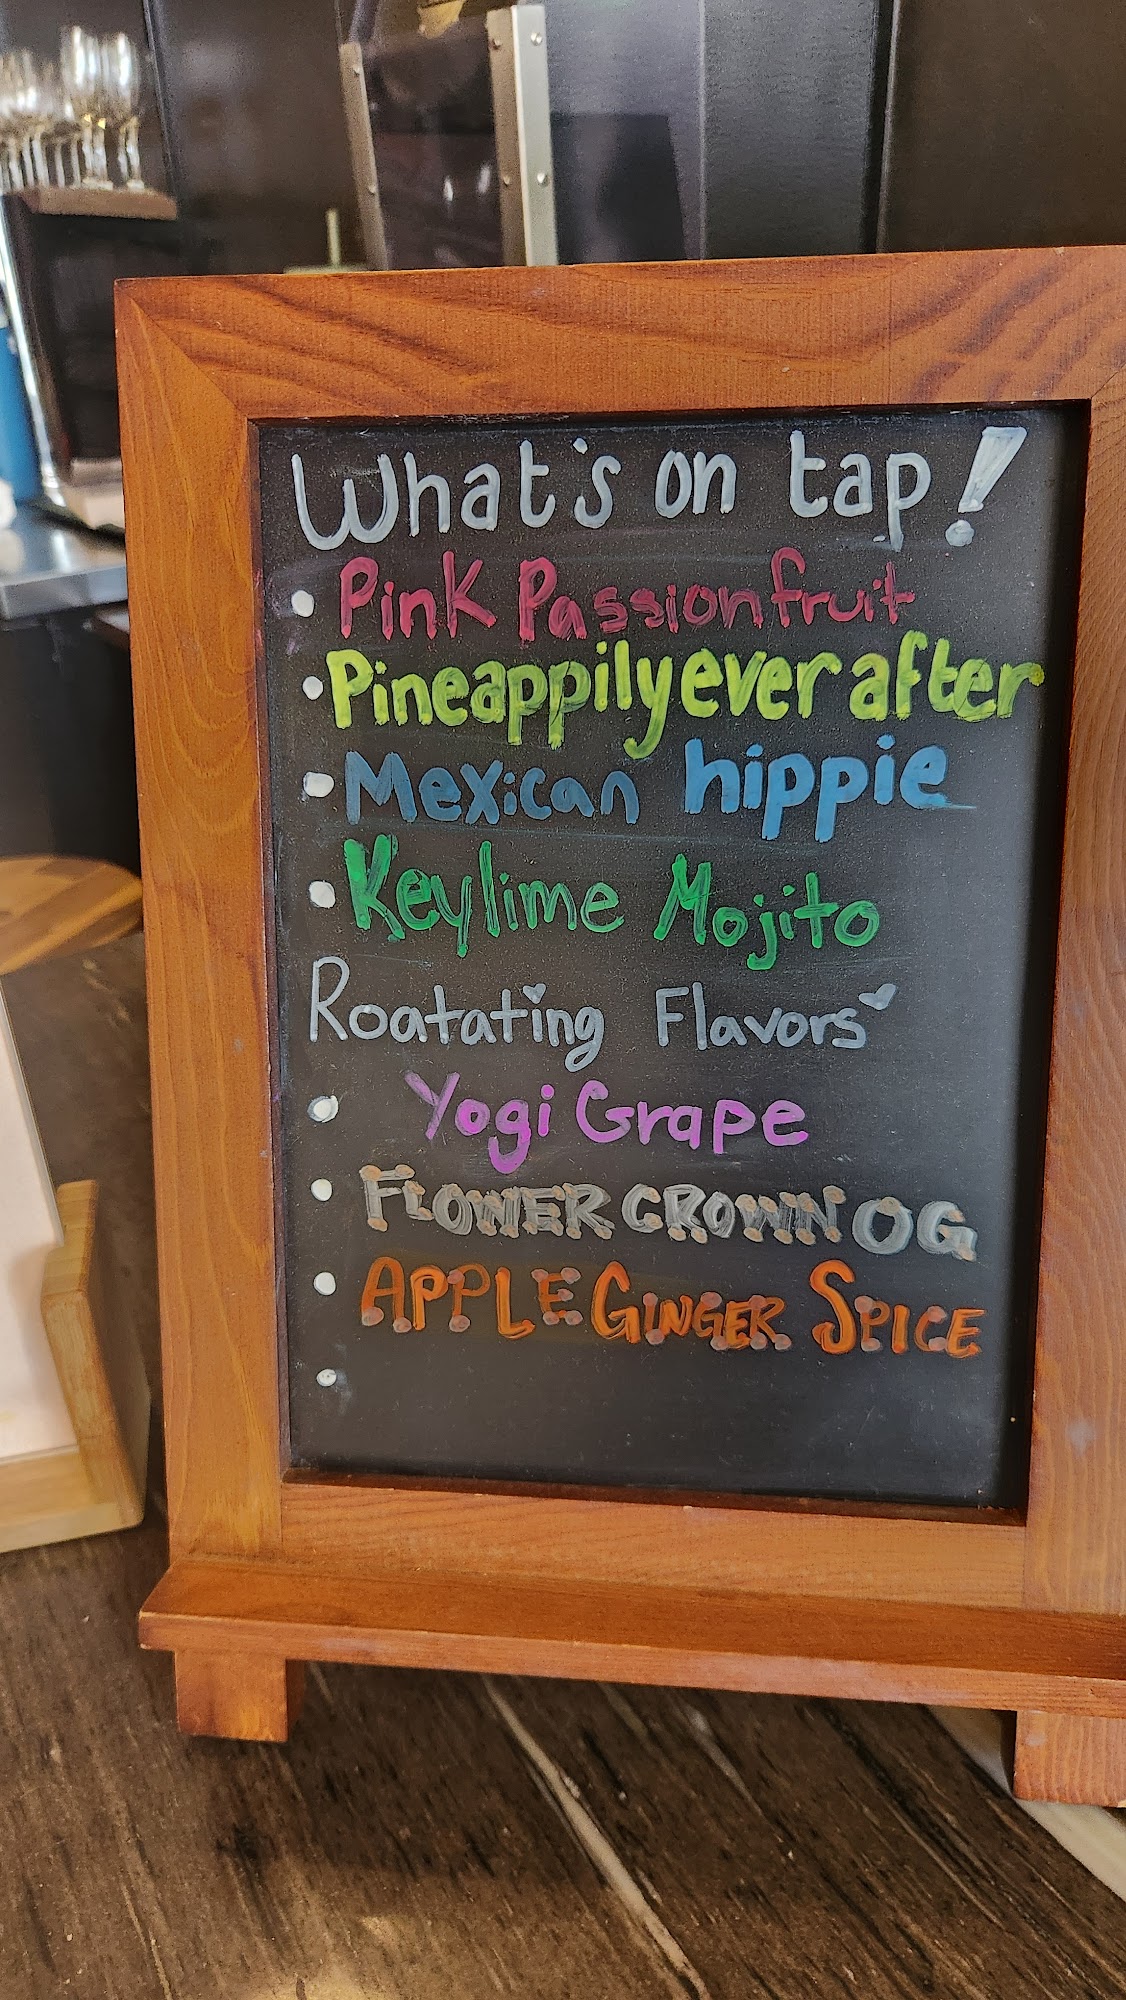 What's on tap!
• Pink Passionfruit
• Pineappilyeverafter
• Mexican hippie
• Keylime Mojito
Roatating Flavors
• Yogi Grape
• FLOWER CROWN OG
• APPLE GINGER SPICE
•